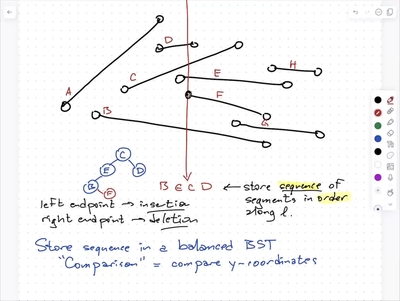 D
A
C
E
H
B
F
G
C
E
D
B
F
B E C D ← store sequence of
segments in order
along l.
left endpoint → insertion
right endpoint → deletion
Store sequence in a balanced BST
"Comparison" = compare y-coordinates